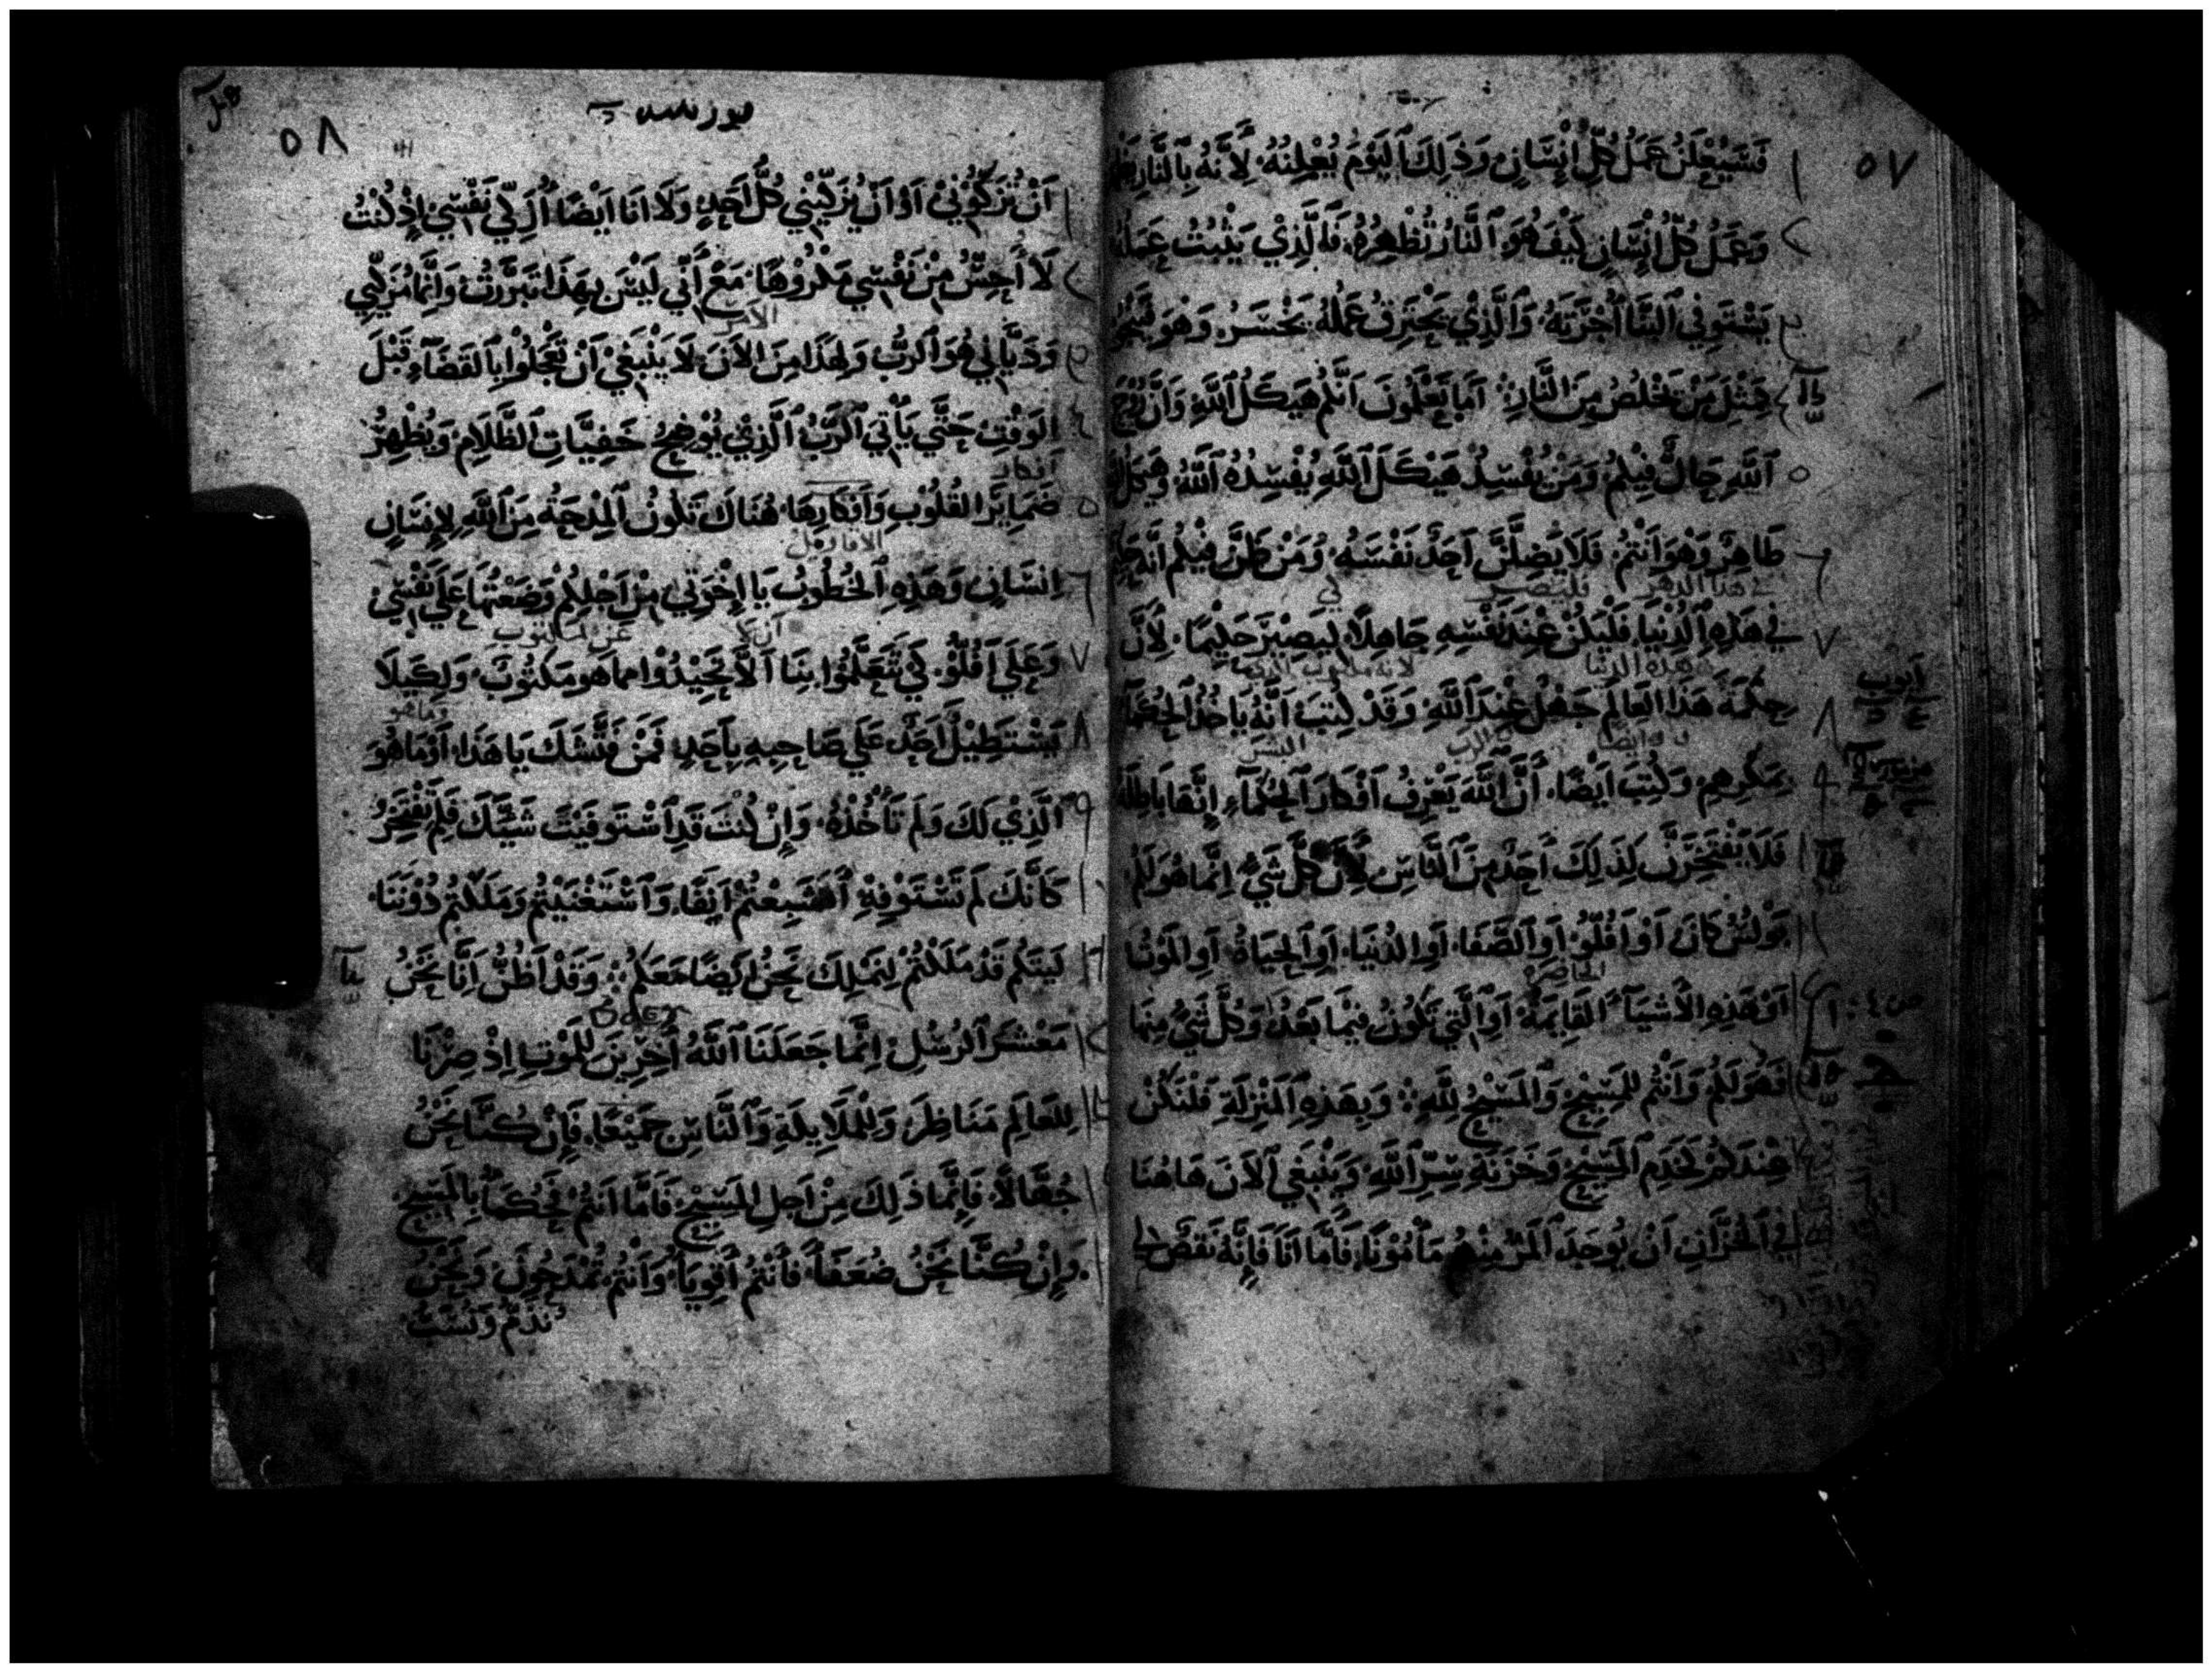 ٥٧
فَسَيُعْلَنُ عَمَلُ كُلِّ اِنْسَانٍ وَذٰلِكَ ٱليَوْمَ يُعْلِنُهُ لِأَنَّهُ بِٱلنَّارِ
وَعَمَلُ كُلِّ اِنْسَانٍ كَيْفَ هُوَ ٱلنَّارُ تُظْهِرُهُ فَٱلَّذِيْ يَثْبُتُ عَمَلُهُ
يَسْتَوفِي ٱلبَنَّا أُجْرَتَهُ وَٱلَّذِيْ يَحْتَرِقُ عَمَلُهُ يَخْسَرُ وَهُوَ
فَمِثْلَ مَنْ يَخْلُصُ مِنَ ٱلنَّارِ أَمَا تَعْلَمُونَ اَنَّكُم هَيكَلُ ٱللَّهِ وَاَنَّ رُوْحَ
ٱللَّهِ حَالٌّ فِيْكُمْ وَمَنْ يُفْسِدُ هَيْكَلَ ٱللَّهِ يُفْسِدُهُ ٱللَّهُ
طَاهِرٌ وَهُوَ اَنْتُمْ فَلَا يُضِلَّنَّ اَحَدٌ نَفْسَهُ وَمَنْ ظَنَّ فِيْكُم اَنَّهُ
هذا الدهر فليصير
فِي هَذِهِ ٱلدُّنْيَا فَلْيَكُنْ عِنْدَ نَفْسِهِ جَاهِلًا لِيَصِيْرَ حَكِيْمًا لِأَنَّ
هذه الدنيا لانه مكتوب
حِكْمَةَ هَذَا ٱلعَالَمِ جَهْلٌ عِنْدَ ٱللَّهِ وَقَدْ كُتِبَ اَنَّهُ يَاخُذُ ٱلحُكَمَآ
وايضا
بِمَكرِهِم وَكُتِبَ اَيضًا أَنَّ ٱللَّهَ يَعْرِفُ اَفْكَارَ ٱلحُكَمَآءِ اِنَّهَا بَاطِلَةٌ
فَلَا يَفْتَخِرَنَّ لِذَلِكَ اَحَدٌ مِنَ ٱلنَّاسِ لِأَنَّ كُلَّ شَيْءٍ اِنَّمَا هُوَ لَكُم
بَوْلُسُ كَانَ أَوْ اَفُلُّوْ أَوِ ٱلصَّفَا أَوِ ٱلدُنْيَا أَوِ ٱلحَيَاةُ أَوِ ٱلمَوْتُ
الحاضره
اَوْ هَذِهِ ٱلأَشْيَآءُ ٱلقَائِمَةُ أَوِ ٱلَّتِي تَكُونُ فِيْمَا بَعْدُ وَكُلُّ شَيْءٍ مِنْهَا
فَهُوَ لَكُم وَاَنْتُم لِلمَسِيْحِ وَٱلمَسِيْحُ لِلَّهِ وَبِهَذِهِ ٱلمَنْزِلَةِ فَلْنَكُنْ
عِنْدَكُم كَخَدَمِ ٱلمَسِيْحِ وَخَزَنَةِ سِرِّ ٱللَّهِ وَيَنْبَغِي ٱلآنَ هَاهُنَا
فِي ٱلخُزَّانِ اَنْ يُوجَدَ ٱلمَرْءُ مِنْهُمْ مَأمُوْنًا فَأَمَّا اَنَا فَإِنَّهُ نَقصٌ لِي
٥٨
اَنْ تُزَكُّوْنِيْ اَوْ اَنْ يُزَكِّيَنِي كُلُّ أَحَدٍ وَلَا اَنَا اَيْضًا أُزَكِّي نَفْسِي اِذْ كُنْتُ
لَا أُحِسُّ مِنْ نَفْسِي مَكْرُوْهًا مَعَ أَنِّي لَيْسَ بِهَذَا تَبَرَّرْتُ وَاِنَّمَا مُزَكِّيِي
الأمر
وَدَيَّانِي هُوَ ٱلرَّبُّ وَلِهَذَا مِنَ ٱلآنَ لَا يَنْبَغِيْ اَنْ تَعْجَلُوا بِٱلقَضَآءِ قَبْلَ
الوَقْتِ حَتَّي يَأْتِيَ ٱلرَّبُّ ٱلَّذِيْ يُوْضِحُ خَفِيَّاتِ ٱلظَّلَامِ وَيُظْهِرُ
ضَمَايِرَ القُلُوبِ وَأَفكَارِهَا هُنَاكَ تَكُونُ ٱلمِدْحَةُ مِنَ ٱللَّهِ لِاِنسَانٍ
الاقاويل
اِنْسَانٍ وَهَذِهِ ٱلخُطُوبُ يَا اِخْوَتِي مِنْ اَجْلِكُمْ وَضَعْتُهَا عَلَي نَفْسِي
ان لا
وَعَلَي اَفُلُّوْ كَيْ تَتَعَلَّمُوا بِنَا اَلَّا تَحِيْدُوْا مما هو مَكتُوْبٌ وَلِكَيلَا
وماهو
يَسْتَطِيْلُ اَحَدٌ عَلَي صَاحِبِهِ بِأَحَدٍ فَمَنْ فَتَّشَكَ يَا هَذَا أَوْ مَا هُوَ
الَّذِي لَكَ وَلَم تَأْخُذْهُ وَاِنْ كُنْتَ قَدِ ٱسْتَوفَيْتَ شَيْئًا فَلِمَ تَفْتَخِرُ
كَأَنَّكَ لَم تَسْتَوْفِهِ أَفَشَبِعْتُمْ اٰنِفًا وَٱسْتَغْنَيْتُم وَمَلَكْتُم دُوْنَنَا
لَيتَكُم قَدْ مَلَكْتُمْ لِنَمْلِكَ نَحْنُ اَيْضًا مَعَكُم وَقَدْ اَظُنُّ اَنَّا نَحْنُ
مَعْشَرَ ٱلرُسُلِ اِنَّمَا جَعَلَنَا ٱللَّهُ آخِرِيْنَ لِلْمَوْتِ اِذْ صِرْنَا
لِلعَالَمِ مَنَاظِرَ وَلِلْمَلَايِكَةِ وَٱلنَّاسِ جَمِيْعًا فَإِنْ كُنَّا نَحْنُ
جُهَّالًا فَاِنَّمَا ذَلِكَ مِنْ اَجلِ ٱلمَسِيْحِ فَأَمَّا اَنْتُم فَحُكَمَآءُ بِٱلمَسِيْحِ
وَاِنْ كُنَّا نَحْنُ ضُعَفَآءُ فَأَنْتُم أَقوِيَآءُ وَاَنْتُم تُمْدَحُونَ وَنَحْنُ
نُذَمُّ وَنُشْتَمُ